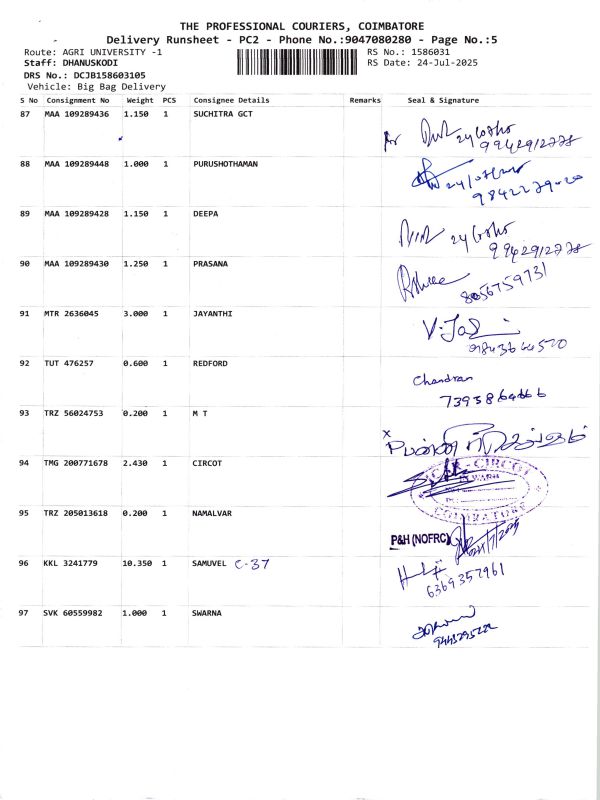 THE PROFESSIONAL COURIERS, COIMBATORE
Delivery Runsheet - PC2 - Phone No.:9047080280 - Page No.:5
Route: AGRI UNIVERSITY -1
RS No.: 1586031
Staff: DHANUSKODI
RS Date: 24-Jul-2025
DRS No.: DCJB158603105
Vehicle: Big Bag Delivery
S No Consignment No Weight PCS Consignee Details Remarks Seal & Signature
87 MAA 109289436 1.150 1 SUCHITRA GCT
9942912778
88 MAA 109289448 1.000 1 PURUSHOTHAMAN
89 MAA 109289428 1.150 1 DEEPA
9942912778
90 MAA 109289430 1.250 1 PRASANA
8056759731
91 MTR 2636045 3.000 1 JAYANTHI
92 TUT 476257 0.600 1 REDFORD
Chandran
93 TRZ 56024753 0.200 1 M T
94 TMG 200771678 2.430 1 CIRCOT
95 TRZ 205013618 0.200 1 NAMALVAR
P&H (NOFRC)
96 KKL 3241779 10.350 1 SAMUVEL C-37
6369357961
97 SVK 60559982 1.000 1 SWARNA